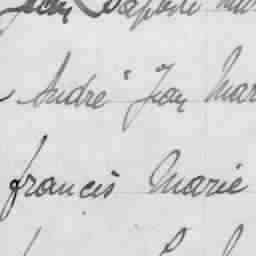 Jean Baptiste
André Jean Mar
francis Marie